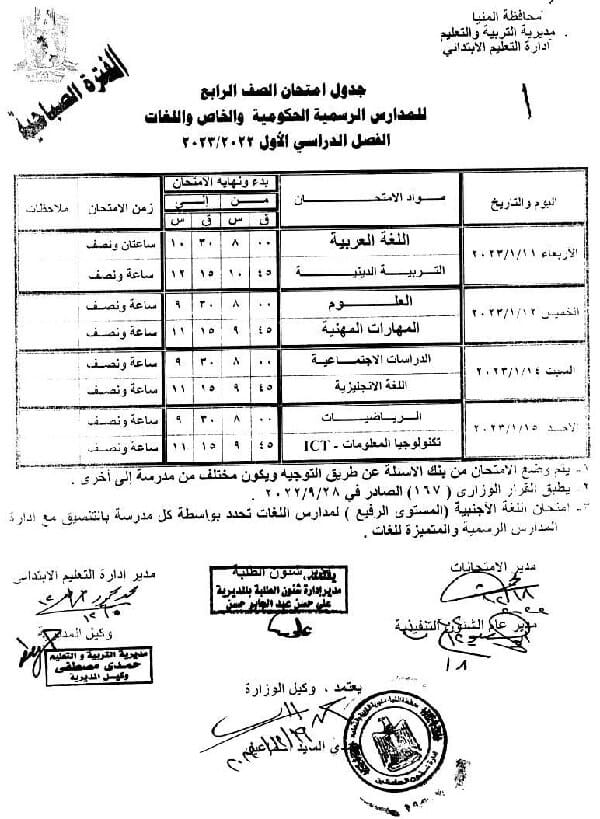 محافظة المنيا
مديرية التربية والتعليم
إدارة التعليم الابتدائي
١
الفترة الصباحية
جدول امتحان الصف الرابع
للمدارس الرسمية الحكومية والخاص واللغات
الفصل الدراسي الأول ٢٠٢٣/٢٠٢٢
اليوم والتاريخ مـواد الامتحــان بدء ونهاية الامتحان زمن الامتحان ملاحظات
مـن إلـى
ق س ق س
الأربعاء ٢٠٢٣/١/١١ اللغة العربية ٠٠ ٨ ٣٠ ١٠ ساعتان ونصف
التـربيـة الدينيـة ٤٥ ١٠ ١٥ ١٢ ساعة ونصف
الخميس ٢٠٢٣/١/١٢ العلـوم ٠٠ ٨ ٣٠ ٩ ساعة ونصف
المهارات المهنية ٤٥ ٩ ١٥ ١١ ساعة ونصف
السبت ٢٠٢٣/١/١٤ الدراسات الاجتمـاعيـة ٠٠ ٨ ٣٠ ٩ ساعة ونصف
اللغة الانجليزية ٤٥ ٩ ١٥ ١١ ساعة ونصف
الاحـد ٢٠٢٣/١/١٥ الـريـاضيـات ٠٠ ٨ ٣٠ ٩ ساعة ونصف
تكنولوجيا المعلومات - ICT ٤٥ ٩ ١٥ ١١ ساعة ونصف
١- يتم وضع الامتحان من بنك الاسئلة عن طريق التوجيه ويكون مختلف من مدرسة إلى أخرى .
٢- يطبق القرار الوزارى ( ١٦٧ ) الصادر في ٢٠٢٢/٩/٢٨ .
٣- امتحان اللغة الأجنبية (المستوى الرفيع ) لمدارس اللغات تحدد بواسطة كل مدرسة بالتنسيق مع ادارة
المدارس الرسمية والمتميزة للغات .
مدير الامتحانات
مدير شئون الطلبة
مدير ادارة التعليم الابتدائى
مدير إدارة شئون الطلبة بالمديرية
على حسن عبد الجابر حسن
مدير عام الشئون التنفيذية
وكيل المديرية
مديرية التربية و التعليم
حمدى مصطفى
وكيل المديرية
يعتمد ، وكيل الوزارة